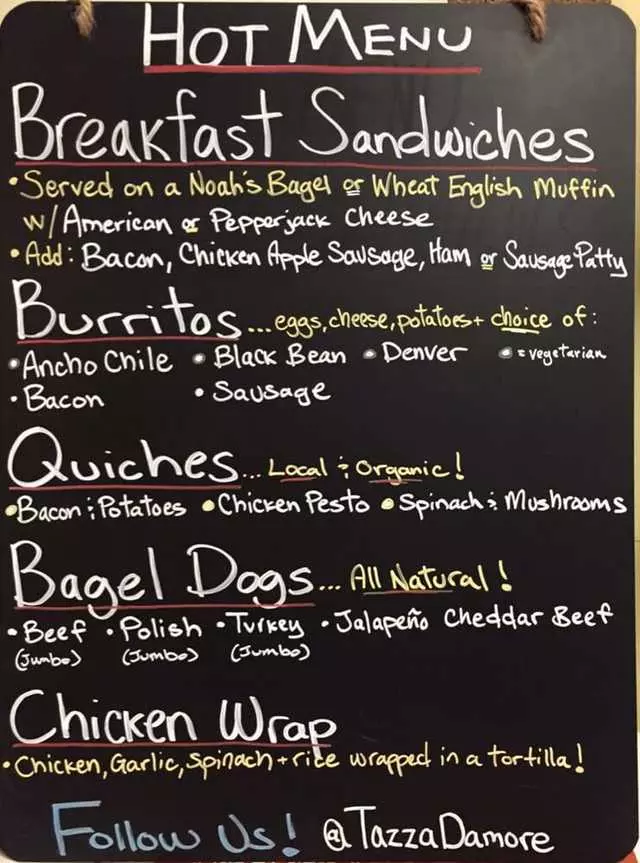 HOT MENU
Breakfast Sandwiches
• Served on a Noah's Bagel or Wheat English Muffin
w/ American or Pepperjack Cheese
• Add: Bacon, Chicken Apple Sausage, Ham or Sausage Patty
Burritos...eggs, cheese, potatoes + choice of:
• Ancho Chile • Black Bean • Denver • = vegetarian
• Bacon • Sausage
Quiches... Local & Organic!
• Bacon & Potatoes • Chicken Pesto • Spinach & Mushrooms
Bagel Dogs... All Natural!
• Beef • Polish • Turkey • Jalapeño Cheddar Beef
(Jumbo) (Jumbo) (Jumbo)
Chicken Wrap
• Chicken, Garlic, Spinach + rice wrapped in a tortilla!
Follow Us! @TazzaDamore